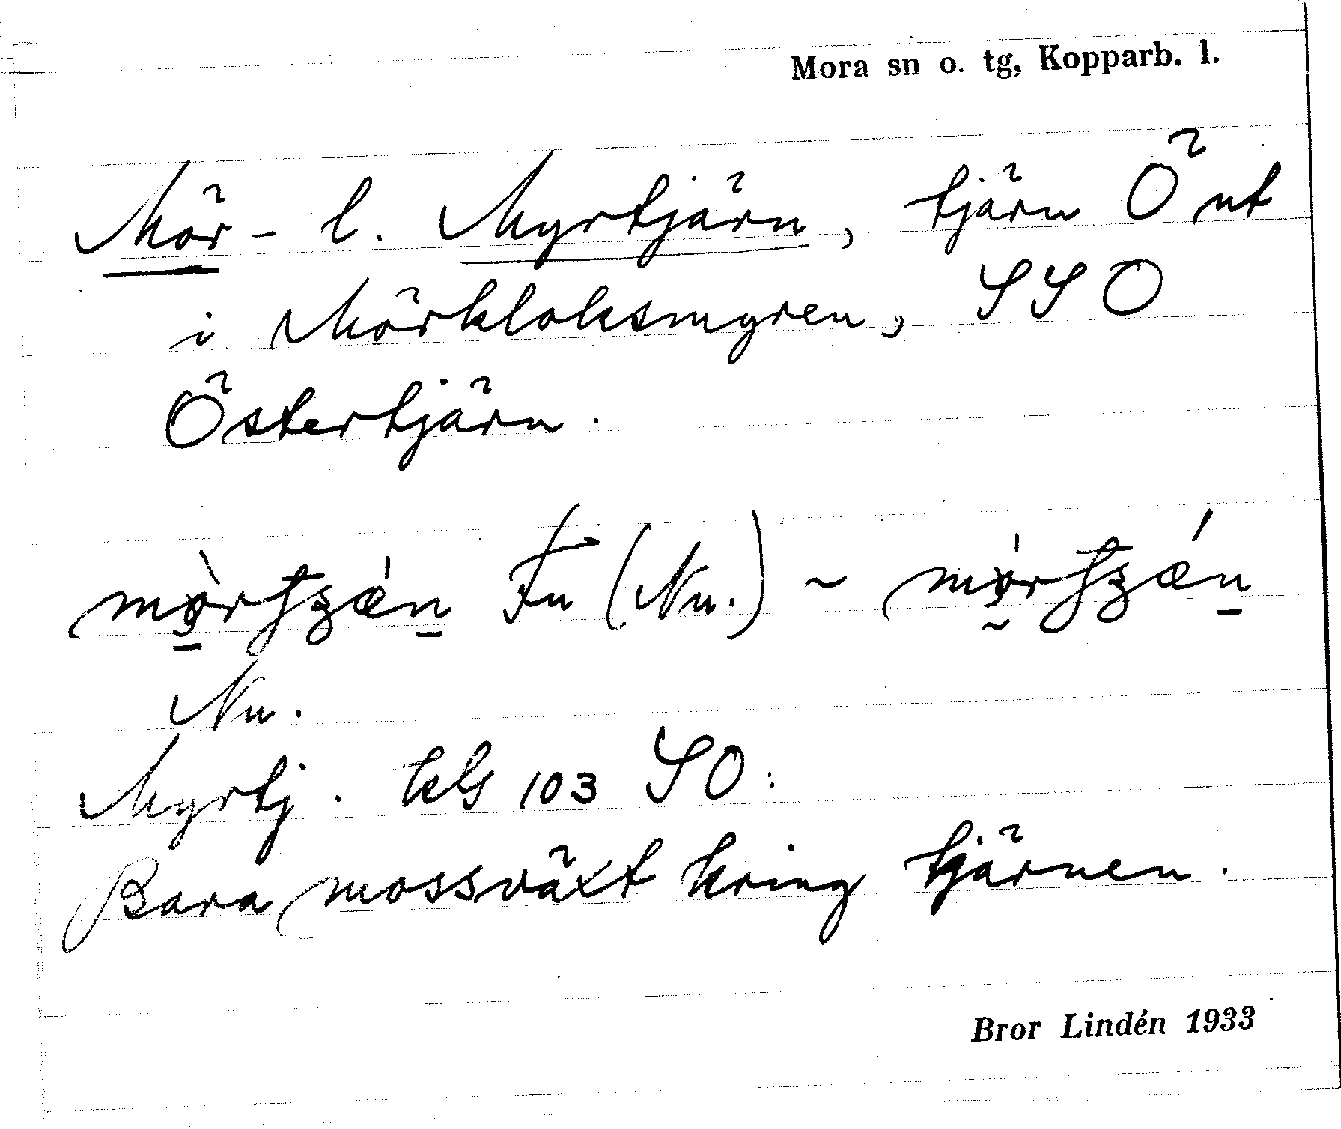 Mora sn o. tg, Kopparb. l.
Mör- l. Myrtjärn, tjärn Ö ut
i Mörkloksmyren, SSO
Östertjärn.
Fu (Nu.) ~
Nu.
Myrtj. kls 103 SO.
Bara mossväxt kring tjärnen.
Bror Lindén 1933